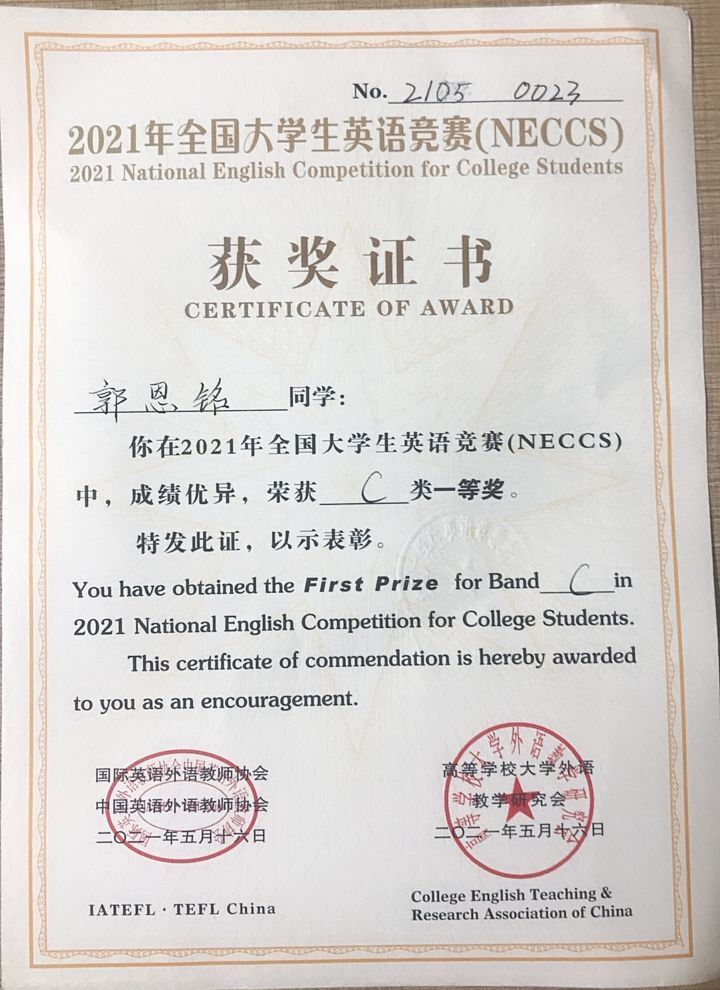 No. 2105 0023
2021年全国大学生英语竞赛(NECCS)
2021 National English Competition for College Students
获奖证书
CERTIFICATE OF AWARD
郭恩铭同学：
你在2021年全国大学生英语竞赛(NECCS)
中，成绩优异，荣获 C 类一等奖。
特发此证，以示表彰。
You have obtained the First Prize for Band C in
2021 National English Competition for College Students.
This certificate of commendation is hereby awarded
to you as an encouragement.
国际英语外语教师协会
中国英语外语教师协会
二〇二一年五月十六日
IATEFL · TEFL China
高等学校大学外语
教学研究会
二〇二一年五月十六日
高等学校大学外语教学研究会
College English Teaching &
Research Association of China